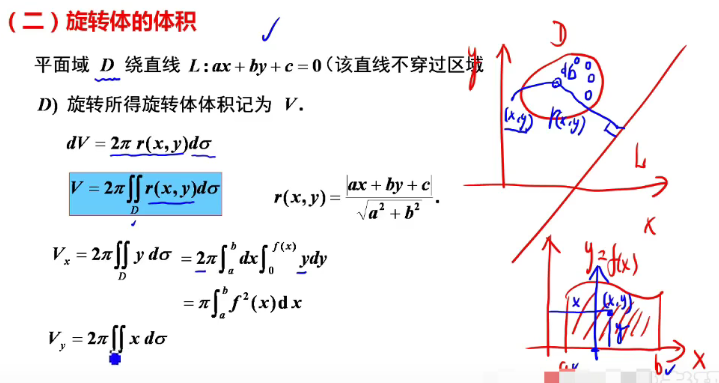 （二）旋转体的体积
平面域 D 绕直线 L : ax + by + c = 0（该直线不穿过区域
D）旋转所得旋转体体积记为 V.
dV = 2π r(x, y)dσ
V = 2π∬_D r(x, y)dσ    r(x, y) = |ax + by + c| / √(a² + b²) .
V_x = 2π∬_D y dσ = 2π∫_a^b dx∫_0^{f(x)} ydy
= π∫_a^b f²(x)dx
V_y = 2π∬ x dσ
D
y
dσ
(x,y)
r(x,y)
L
x
y=f(x)
x
(x,y)
y
a
b
x